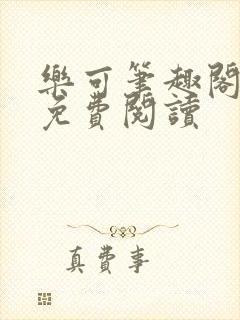 樂可筆趣閣
免費閱讀
真費事